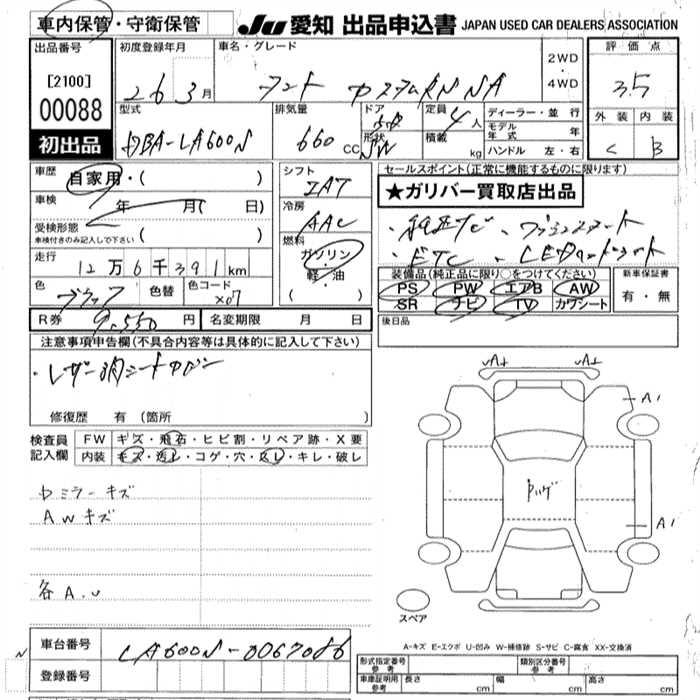 車内保管・守衛保管
JU 愛知 出品申込書 JAPAN USED CAR DEALERS ASSOCIATION
出品番号
[2100]
00088
初出品
初度登録年月
26 3月
車名・グレード
タント カスタムRS SA
2WD
・
4WD
評価点
3.5
外装 内装
C B
型式
DBA-LA600S
排気量
660 cc
ドア
形状
定員
4人
積載
kg
ディーラー・並行
モデル年式 年
ハンドル 左・右
車歴
自家用・( )
車検
年 月( 日)
受検形態
車検付きのみ記入して下さい ( )
走行
12万6千391km
色
ブラック
色替
色コード
X07
シフト
IAT
冷房
AAC
燃料
ガソリン
・
軽・油
( )
セールスポイント(正常に機能するものに限ります)
★ガリバー買取店出品
・純正ナビ ・プッシュスタート
・ETC ・LEDヘッドライト
装備品(純正品に限り○をつけてください)
PS PW エアB AW
SR ナビ TV カワシート
新車保証書
有・無
R券 9,550円
名変期限 月 日
後日品
注意事項申告欄(不具合内容等は具体的に記入して下さい)
・レザー調シートカバー
修復歴 有(箇所 )
検査員
記入欄
FW キズ・飛石・ヒビ割・リペア跡・X要
内装 キズ・汚レ・コゲ・穴・スレ・キレ・破レ
ミラーキズ
AWキズ
各A.U
A1
A1
スペア
A-キズ E-エクボ U-凹み W-補修跡 S-サビ C-腐食 XX-交換済
車台番号
LA600S-0067086
登録番号
形式指定番号
参考
類別区分番号
参考
車庫証明用
参考
長さ cm 幅 cm 高さ cm